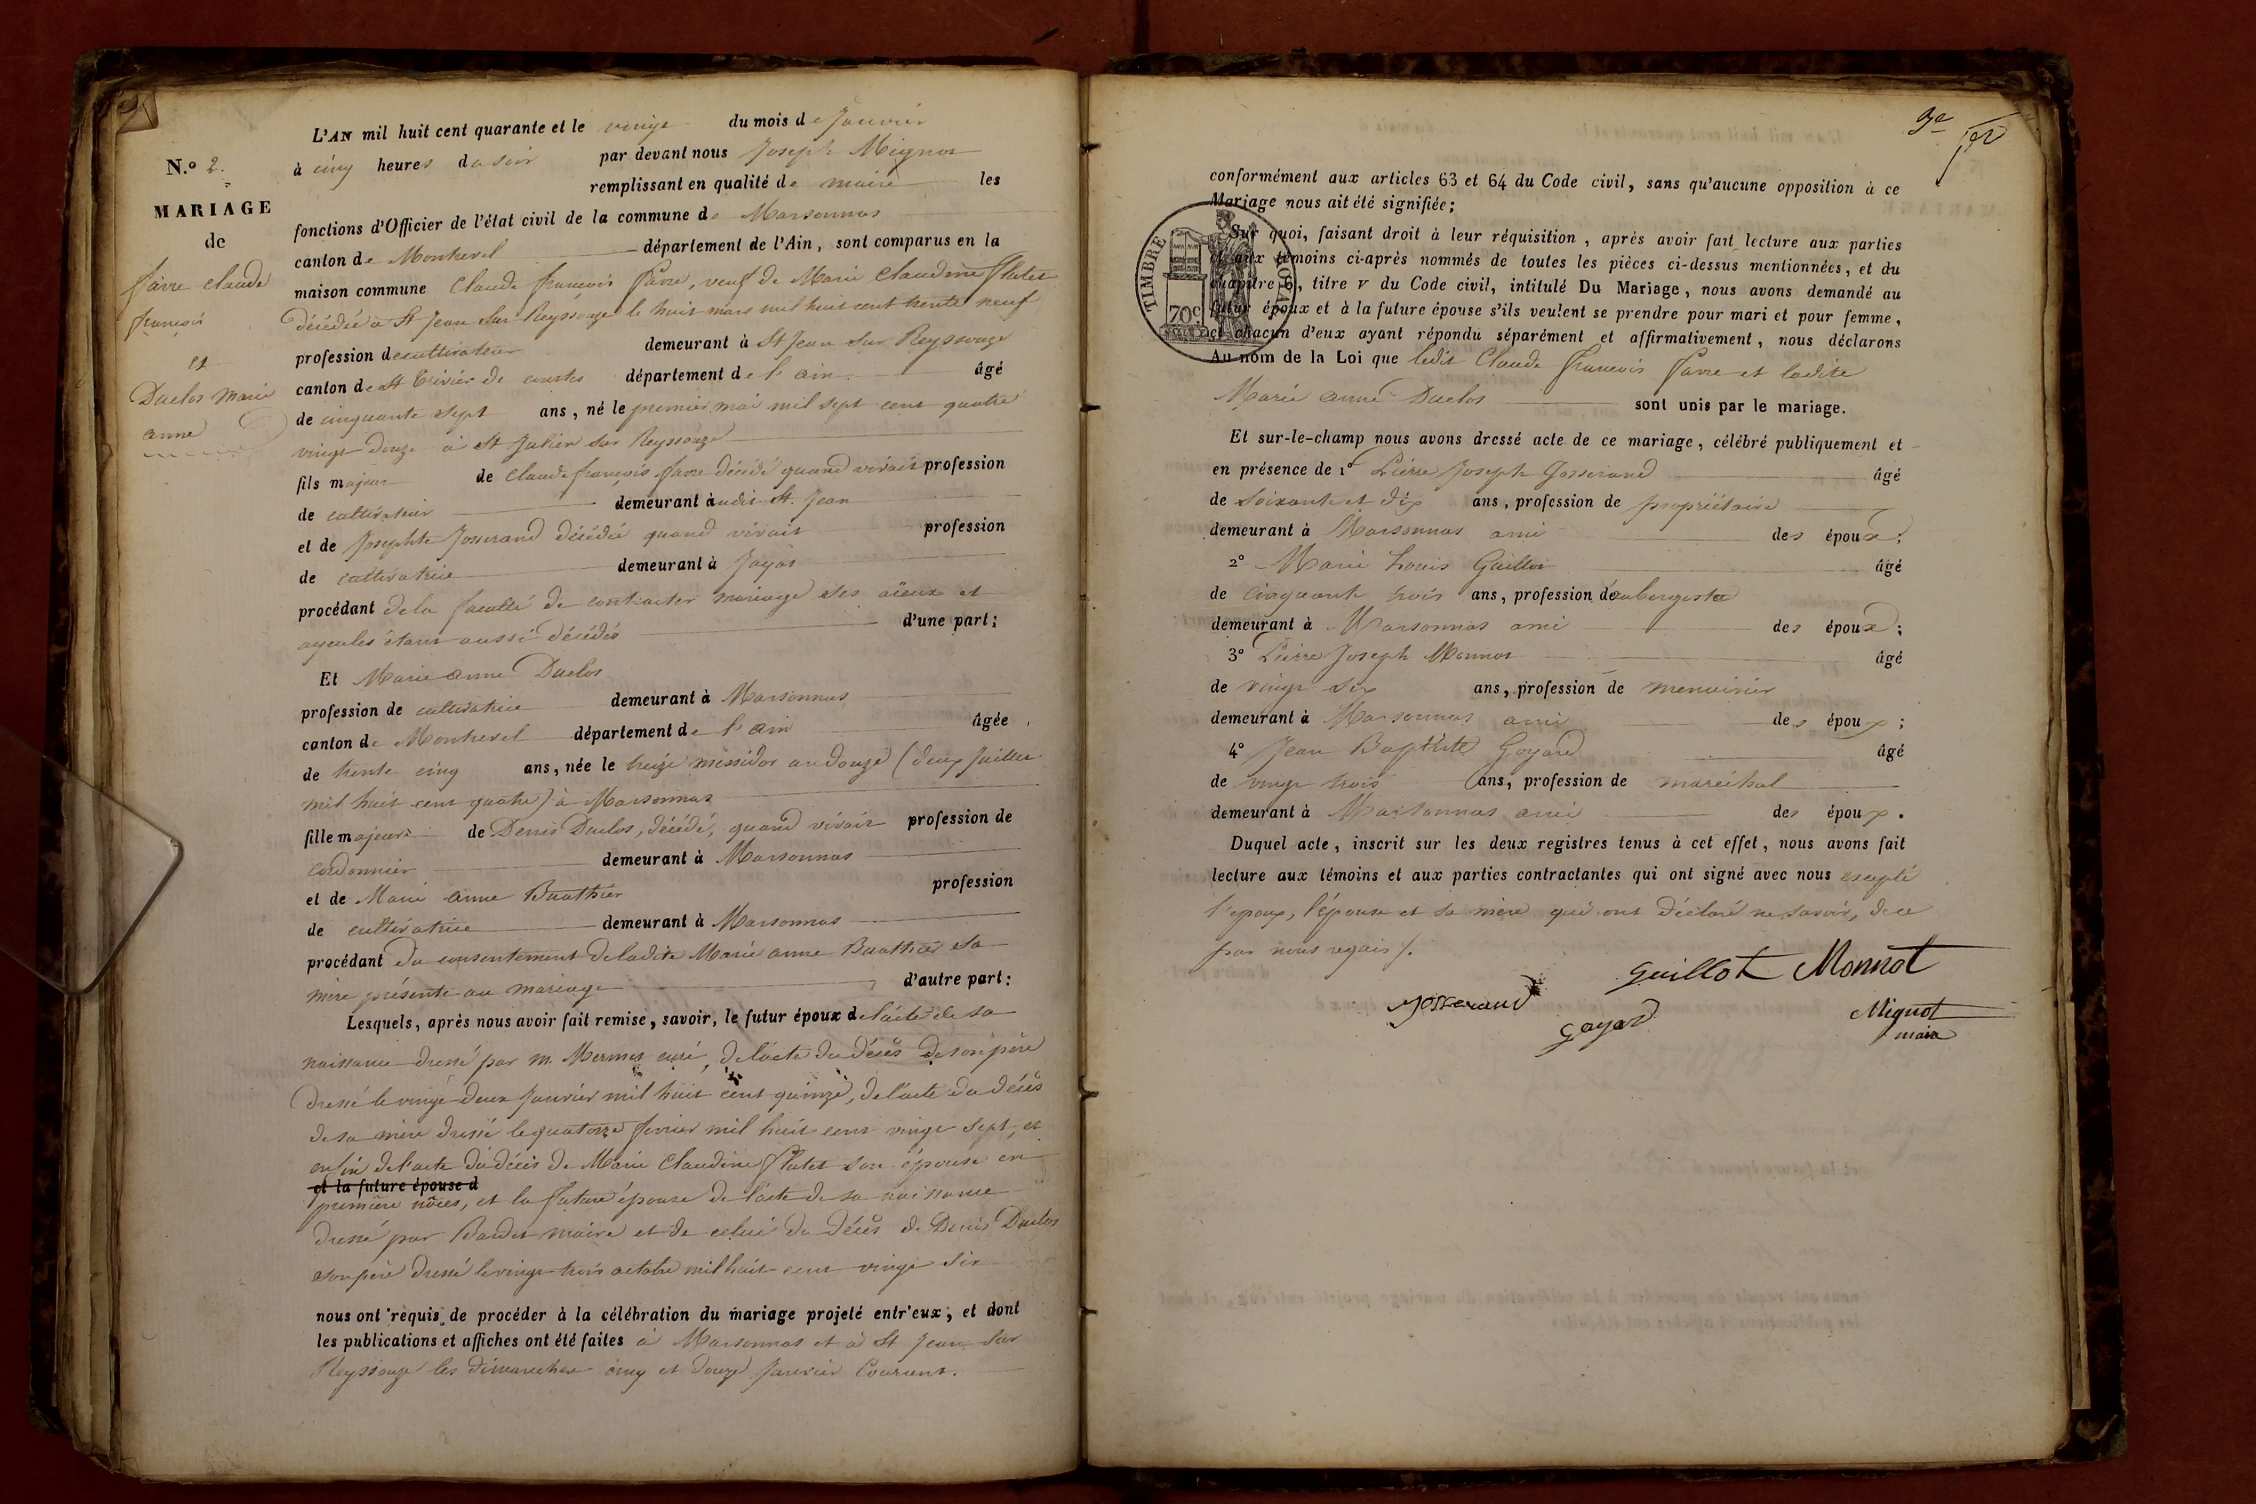 L'AN mil huit cent quarante et le vingt du mois de Janvier
N.o 2. à cinq heures du soir par devant nous Joseph Mignot
remplissant en qualité de maire les
MARIAGE
fonctions d'Officier de l'état civil de la commune de Marsonnas
de
canton de Montrevel département de l'Ain, sont comparus en la
favre claude
maison commune Claude françois favre, veuf de Marie Claudine
françois
décédée à St Jean sur Reyssouze le huit mars mil huit cent trente neuf
profession de cultivateur demeurant à St Jean sur Reyssouze
et
canton de St Trivier de courtes département de l'ain âgé
Duclos Marie
de cinquante sept ans, né le premier mai mil sept cent quatre
anne
vingt douze à St Julien sur Reyssouze
fils majeur de Claude françois favre décédé quand vivait profession
de cultivateur demeurant audit St Jean
et de Josephte Josserand décédée quand vivait profession
de cultivatrice demeurant à Jayat
procédant de la faculté de contracter mariage ses aïeux et
ayeules étant aussi décédés d'une part;
Et Marie anne Duclos
profession de cultivatrice demeurant à Marsonnas
canton de Montrevel département de l'ain âgée
de trente cinq ans, née le treize messidor an douze (deux Juillet
mil huit cent quatre) à Marsonnas
fille majeure de Denis Duclos, décédé, quand vivait profession de
cordonnier demeurant à Marsonnas
et de Marie anne Buathier profession
de cultivatrice demeurant à Marsonnas
procédant du consentement de ladite Marie anne Buathier sa
mère présente au mariage d'autre part:
Lesquels, après nous avoir fait remise, savoir, le futur époux de l'acte de sa
naissance dressé par m. Mermet curé, de l'acte du décès de son père
dressé le vingt deux Janvier mil huit cent quinze, de l'acte du décès
de sa mère dressé le quatorze fevrier mil huit cent vingt sept, et
enfin de l'acte du décès de Marie Claudine son épouse en
et la future épouse d
première nôces, et la future épouse de l'acte de sa naissance
dressé par maire et de celui du décès de Denis Duclos
son père dressé le vingt trois octobre mil huit cent vingt six
nous ont requis de procéder à la célébration du mariage projeté entr'eux, et dont
les publications et affiches ont été faites à Marsonnas et à St Jean sur
Reyssouze les dimanches cinq et douze Janvier Courant.
conformément aux articles 63 et 64 du Code civil, sans qu'aucune opposition à ce
Mariage nous ait été signifiée;
TIMBRE ROYAL
70c
Sur quoi, faisant droit à leur réquisition, après avoir fait lecture aux parties
et aux témoins ci-après nommés de toutes les pièces ci-dessus mentionnées, et du
chapitre 6, titre v du Code civil, intitulé Du Mariage, nous avons demandé au
futur époux et à la future épouse s'ils veulent se prendre pour mari et pour femme,
et chacun d'eux ayant répondu séparément et affirmativement, nous déclarons
Au nom de la Loi que ledit Claude françois favre et ladite
Marie anne Duclos sont unis par le mariage.
Et sur-le-champ nous avons dressé acte de ce mariage, célébré publiquement et
en présence de 1o Pierre Joseph Josserand âgé
de soixante et dix ans, profession de propriétaire
demeurant à Marsonnas ami des époux;
2o Marie Louis Guillot âgé
de cinquante trois ans, profession d'aubergiste
demeurant à Marsonnas ami des époux;
3o Pierre Joseph Monnot âgé
de vingt six ans, profession de menuisier
demeurant à Marsonnas ami des époux;
4o Jean Baptiste Goyard âgé
de vingt trois ans, profession de maréchal
demeurant à Marsonnas ami des époux.
Duquel acte, inscrit sur les deux registres tenus à cet effet, nous avons fait
lecture aux témoins et aux parties contractantes qui ont signé avec nous excepté
l'époux, l'épouse et sa mère qui ont déclaré ne savoir, de ce
par nous requis.
Guillot Monnot
Josserand Goyard Mignot
maire